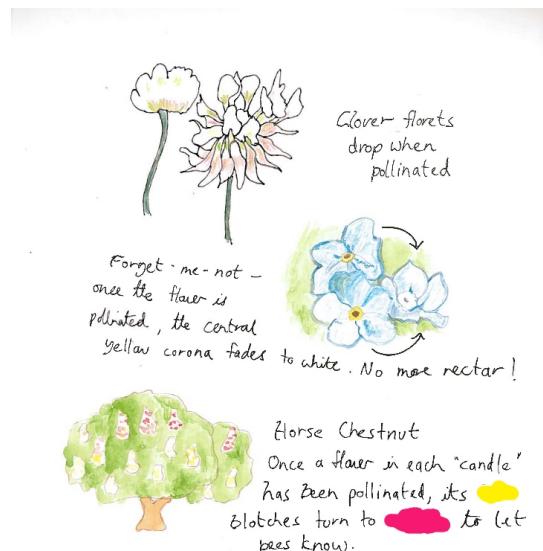 Clover florets
drop when
pollinated
Forget-me-not –
once the flower is
pollinated, the central
yellow corona fades to white. No more nectar!
Horse Chestnut
Once a flower in each "candle"
has been pollinated, its
blotches turn to to let
bees know.